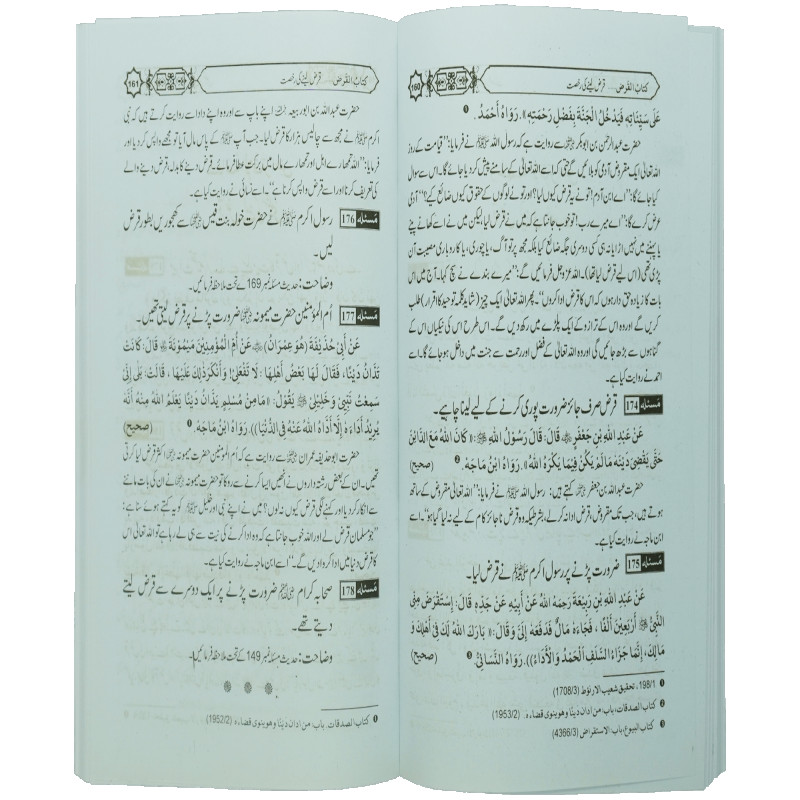 کتاب القرض ... قرض لینے کی رخصت
160
عَلٰی سَیِّئَاتِهٖ فَیَدْخُلُ الْجَنَّةَ بِفَضْلِ رَحْمَتِهٖ)). رَوَاهُ أَحْمَدُ. ❶
حضرت عبدالرحمٰن بن ابوبکر سے روایت ہے کہ رسول اللہ ﷺ نے فرمایا: ’’قیامت کے روز
اللہ تعالیٰ ایک مقروض آدمی کو بلائیں گے حتی کہ اسے اللہ تعالیٰ کے سامنے پیش کر دیا جائے گا۔ اس سے سوال
کیا جائے گا: ’’اے ابن آدم! تو نے یہ قرض کیوں لیا؟ اور تو نے لوگوں کے حقوق کیوں ضائع کیے؟‘‘ آدمی
عرض کرے گا: ’’اے میرے رب! تو خوب جانتا ہے کہ میں نے قرض لیا، لیکن میں نے اسے کھانے پینے
یا پہننے میں نہیں اڑایا نہ ہی کسی دوسری جگہ ضائع کیا بلکہ مجھ پر تو آگ، یا چوری، یا کاروباری مصیبت آن
پڑی تھی (اس لیے قرض لیا تھا)۔ اللہ عزوجل فرمائیں گے: ’’میرے بندے نے سچ کہا۔ آج میں اس
بات کا زیادہ حق دار ہوں کہ اس کا قرض ادا کروں‘‘۔ پھر اللہ تعالیٰ ایک چیز (شاید کلمہ توحید کا اقرار) طلب
کریں گے اور وہ اس کے ترازو کے ایک پلڑے میں رکھ دیں گے۔ اس طرح اس کی نیکیاں اس کے
گناہوں سے بڑھ جائیں گی اور وہ اللہ تعالیٰ کے فضل اور رحمت سے جنت میں داخل ہو جائے گا۔ اسے
احمد نے روایت کیا ہے۔
مَسئله 174 قرض صرف جائز ضرورت پوری کرنے کے لیے لینا چاہیے۔
عَنْ عَبْدِ اللّٰهِ بْنِ جَعْفَرٍ قَالَ: قَالَ رَسُوْلُ اللّٰهِ ﷺ: ((كَانَ اللّٰهُ مَعَ الدَّائِنِ
حَتّٰی یَقْضِیَ دَیْنَهٗ مَالَمْ یَكُنْ فِیْمَا یَكْرَهُ اللّٰهُ)). رَوَاهُ ابْنُ مَاجَهْ. ❷ (صحیح)
حضرت عبداللہ بن جعفر کہتے ہیں: رسول اللہ ﷺ نے فرمایا: ’’اللہ تعالیٰ مقروض کے ساتھ
ہوتے ہیں، جب تک مقروض، قرض ادا نہ کرلے، بشرطیکہ وہ قرض ناجائز کام کے لیے نہ لیا گیا ہو‘‘۔ اسے
ابن ماجہ نے روایت کیا ہے۔
مَسئله 175 ضرورت پڑنے پر رسول اکرم ﷺ نے قرض لیا۔
عَنْ عَبْدِ اللّٰهِ بْنِ رَبِیْعَةَ رَحِمَهُ اللّٰهُ عَنْ أَبِیْهِ عَنْ جَدِّهٖ قَالَ: إِسْتَقْرَضَ مِنِّی
النَّبِیُّ ﷺ أَرْبَعِیْنَ أَلْفًا، فَجَاءَهٗ مَالٌ فَدَفَعَهٗ إِلَیَّ وَقَالَ: ((بَارَكَ اللّٰهُ لَكَ فِیْ أَهْلِكَ وَ
مَالِكَ، إِنَّمَا جَزَاءُ السَّلَفِ الْحَمْدُ وَ الْأَدَاءُ)). رَوَاهُ النَّسَائِیُّ ❸ (صحیح)
❶ 198/1، تحقیق شعیب الارنؤط (1708/3)
❷ کتاب الصدقات، باب من ادان دینًا وهوینوی قضاءه. (1953/2)
❸ کتاب البیوع، باب الاستقراض (4366/3)
کتاب القرض ... قرض لینے کی رخصت
161
حضرت عبداللہ بن ابوربیعہ اپنے باپ سے اور وہ اپنے دادا سے روایت کرتے ہیں کہ نبی
اکرم ﷺ نے مجھ سے چالیس ہزار کا قرض لیا۔ جب آپ ﷺ کے پاس مال آیا تو مجھے واپس کر دیا اور
فرمایا: ’’اللہ تمہارے اہل اور تمہارے مال میں برکت عطا فرمائے۔ قرض دینے کا بدلہ، قرض دینے والے
کی تعریف کرنا اور اسے قرض واپس کرنا ہے‘‘۔ اسے نسائی نے روایت کیا ہے۔
مَسئله 176 رسول اکرم ﷺ نے حضرت خولہ بنت قیس سے کھجوریں بطور قرض
لیں۔
وضاحت: حدیث مسئلہ نمبر 169 کے تحت ملاحظہ فرمائیں۔
مَسئله 177 اُم المؤمنین حضرت میمونہ ضرورت پڑنے پر قرض لیتی تھیں۔
عَنْ أَبِیْ حُذَیْفَةَ (هُوَ عِمْرَانُ) عَنْ أُمِّ الْمُؤْمِنِیْنَ مَیْمُوْنَةَ قَالَ: كَانَتْ
تَدَّانُ دَیْنًا، فَقَالَ لَهَا بَعْضُ أَهْلِهَا: لَا تَفْعَلِیْ! وَأَنْكَرَ ذٰلِكَ عَلَیْهَا، قَالَتْ: بَلٰی إِنِّیْ
سَمِعْتُ نَبِیِّیْ وَخَلِیْلِیْ ﷺ یَقُوْلُ: ((مَا مِنْ مُسْلِمٍ یَدَّانُ دَیْنًا یَعْلَمُ اللّٰهُ مِنْهُ أَنَّهٗ
یُرِیْدُ أَدَاءَهٗ إِلَّا أَدَّاهُ اللّٰهُ عَنْهُ فِی الدُّنْیَا)). رَوَاهُ ابْنُ مَاجَهْ. ❶ (صحیح)
حضرت ابوحذیفہ عمران سے روایت ہے کہ اُم المؤمنین حضرت میمونہ اکثر قرض لیا کرتی
تھیں۔ ان کے بعض رشتہ داروں نے انھیں ایسا کرنے سے روکا تو حضرت میمونہ نے ان کی بات ماننے
سے انکار کر دیا اور کہنے لگیں قرض کیوں نہ لوں؟ میں نے اپنے نبی اور خلیل ﷺ کو یہ کہتے ہوئے سنا ہے:
’’جو مسلمان قرض لے اور اللہ خوب جانتا ہے کہ وہ ادا کرنے کی نیت سے ہی لے رہا ہے تو اللہ تعالیٰ اس
کا قرض دنیا میں ادا کروا دیں گے۔‘‘ اسے ابن ماجہ نے روایت کیا ہے۔
مَسئله 178 صحابہ کرام ضرورت پڑنے پر ایک دوسرے سے قرض لیتے
دیتے تھے۔
وضاحت: حدیث مسئلہ نمبر 149 کے تحت ملاحظہ فرمائیں۔
❶ کتاب الصدقات، باب من ادان دینًا وهوینوی قضاءه (1952/2)